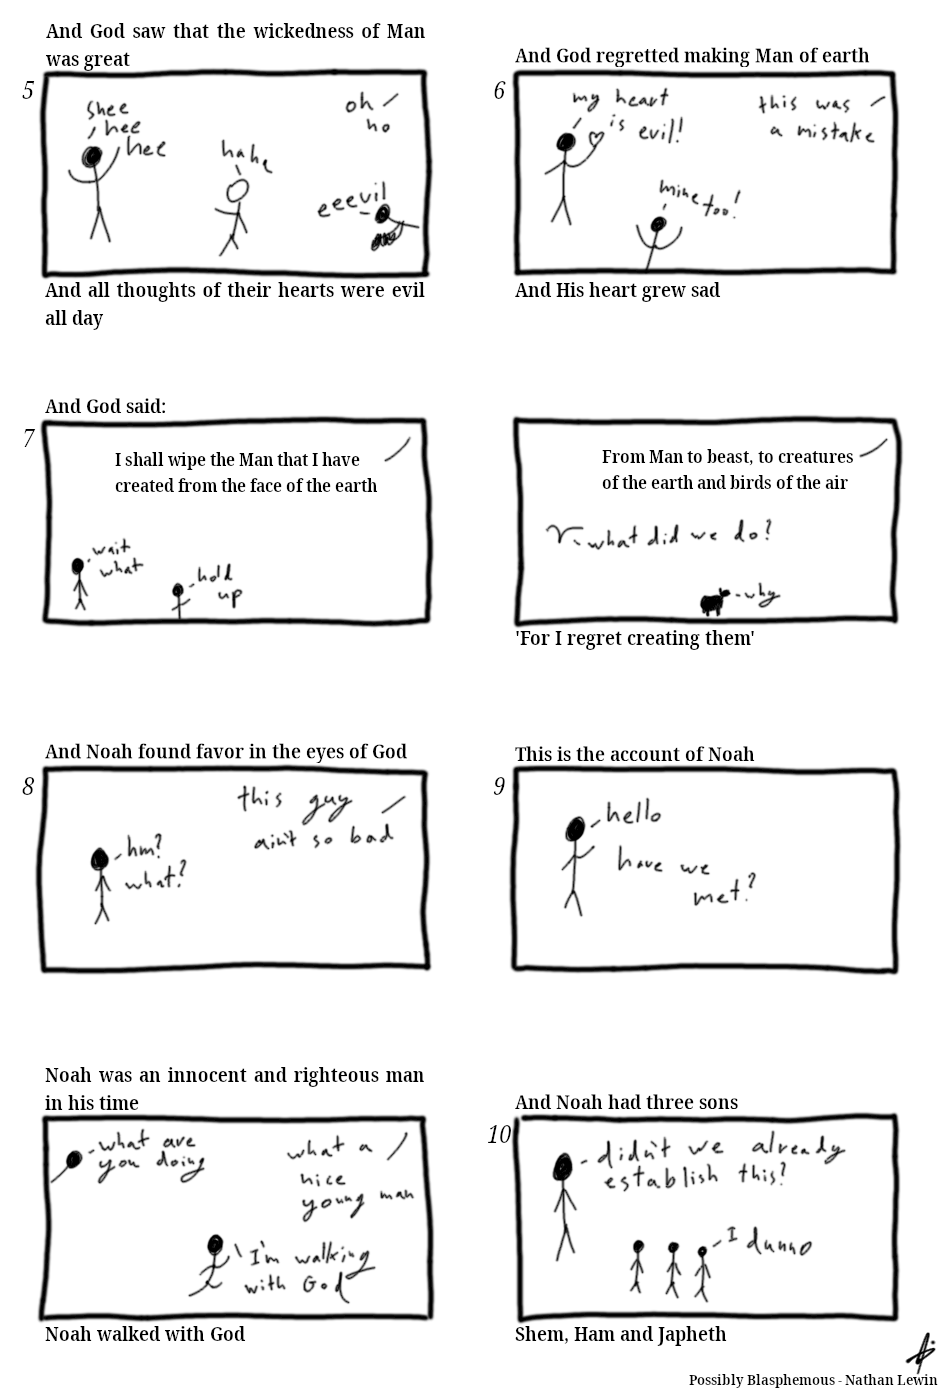 And God saw that the wickedness of Man
was great
5
shee
hee
hee
haha
eeevil
oh
ho
And all thoughts of their hearts were evil
all day
And God regretted making Man of earth
6
my heart
is evil!
mine too!
this was
a mistake
And His heart grew sad
And God said:
7
I shall wipe the Man that I have
created from the face of the earth
wait
what
hold
up
From Man to beast, to creatures
of the earth and birds of the air
what did we do?
why
'For I regret creating them'
And Noah found favor in the eyes of God
8
this guy
ain't so bad
hm?
what?
This is the account of Noah
9
hello
have we
met?
Noah was an innocent and righteous man
in his time
what are
you doing
what a
nice
young man
I'm walking
with God
Noah walked with God
And Noah had three sons
10
didn't we already
establish this?
I dunno
Shem, Ham and Japheth
Possibly Blasphemous - Nathan Lewin